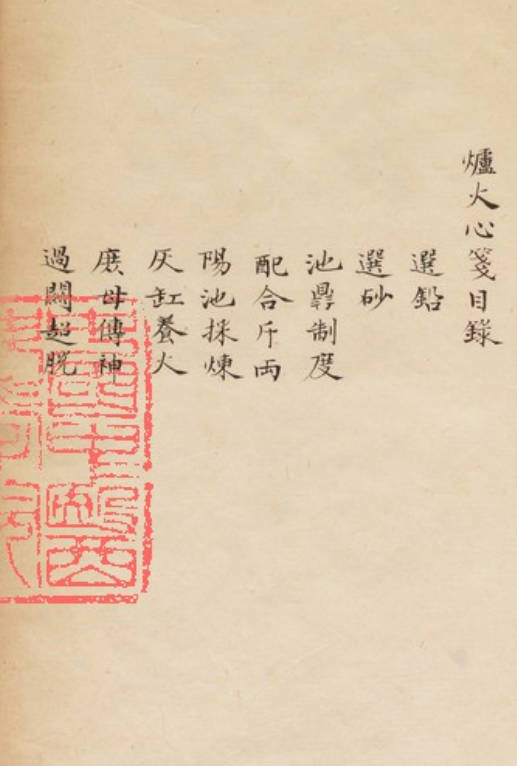 爐火心箋目錄
選鉛
選砂
池鼎制度
配合斤両
陽池採煉
灰缸養火
庶母傳神
過關超脫